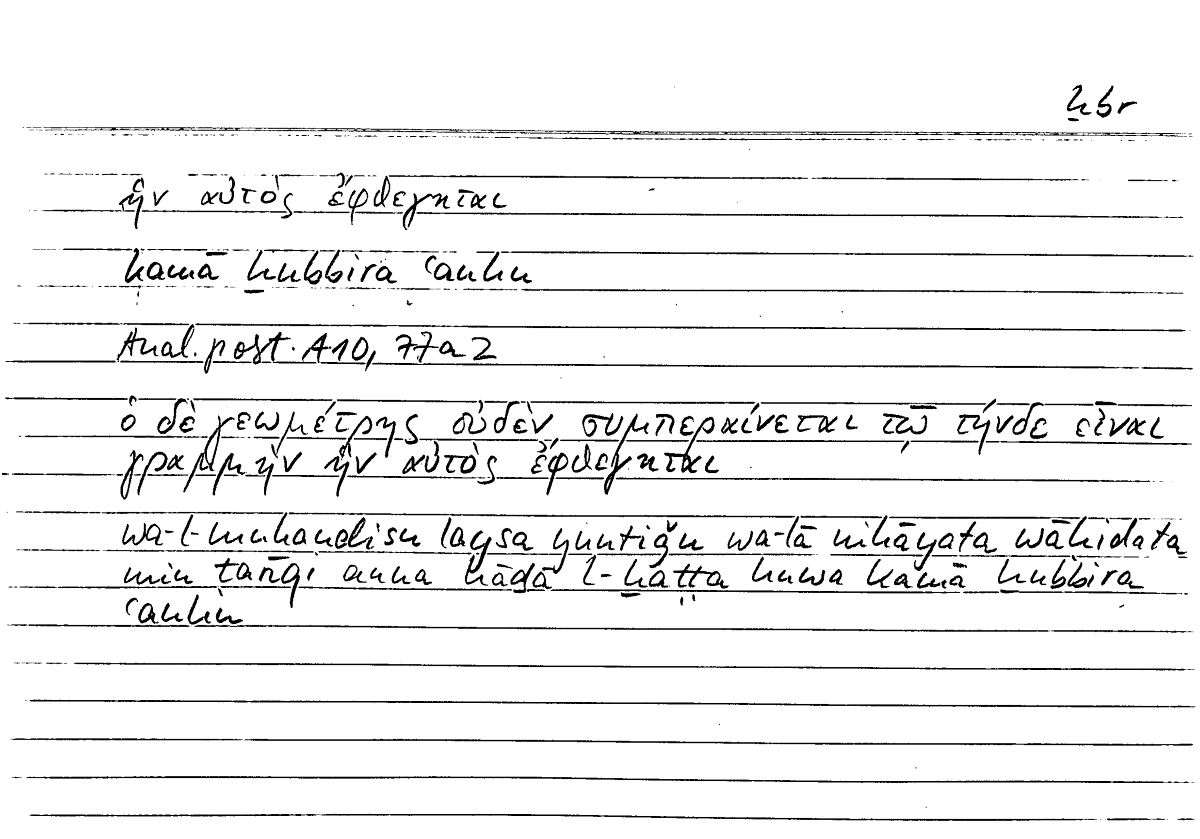 ḫbr
ἣν αὐτὸς ἔφθεγκται
kamā ḫubbira ʿanhu
Anal. post. A10, 77a2
ὁ δὲ γεωμέτρης οὐδὲν συμπεραίνεται τῷ τήνδε εἶναι
γραμμὴν ἣν αὐτὸς ἔφθεγκται
wa-l-muhandisu laysa yuntiǧu wa-lā nihāyata wāḥidata
min ṭarīqi anna hāḏā l-ḫaṭṭa huwa kamā ḫubbira
ʿanhu